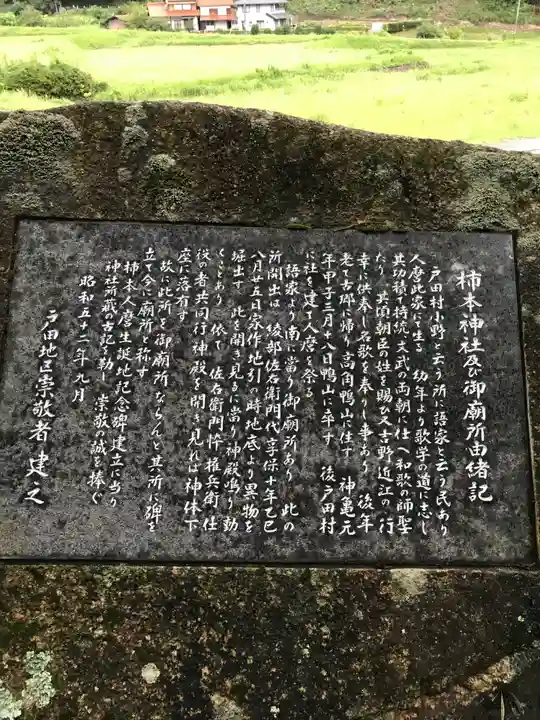 柿本神社及び御廟所由緒記
戸田村小野と云う所に語家と云う民あり
人麿此家にて生る 幼年より歌学の道に志し
其功積て持統 文武の両朝に仕へ和歌の師聖
たり 其頃朝臣の姓を賜ひ又吉野近江の行
幸に供奉し名歌を奉りし事あり 後年
老て古郷に帰り高角鴨山に住す 神亀元
年甲子三月十八日鴨山に卒す 後戸田村
に社を建て人麿を祭る
語家より南に当り御廟所あり 此の
所開出は 綾部佐右衛門代享保十年乙巳
八月廿五日家作地引の時地底より異物を
堀出す 此を開き見るに当り神殿鳴り動
くことあり 依て 佐右衛門忰権兵衛仕
役の者共同行神殿を開き見れば神体下
座に落有す
故に此所を御廟所ならんと其所に碑を
立て今に廟所と称す
柿本人麿生誕地記念碑建立に当り
神社所蔵の古記を勒し 崇敬の誠を捧ぐ
昭和五十二年九月
戸田地区崇敬者 建之